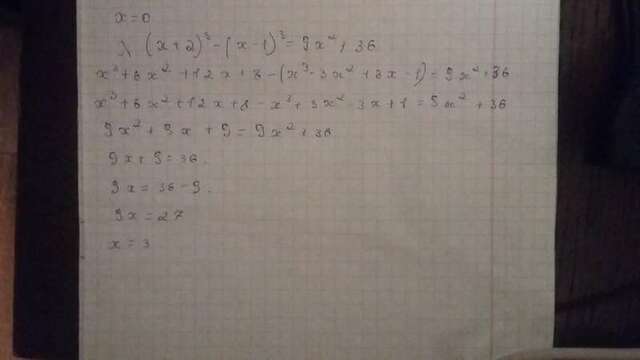 x=0
) (x+2)³-(x-1)³=9x²+36
x³+6x²+12x+8-(x³-3x²+3x-1)=9x²+36
x³+6x²+12x+8-x³+3x²-3x+1=9x²+36
9x²+9x+9=9x²+36
9x+9=36.
9x=36-9.
9x=27
x=3